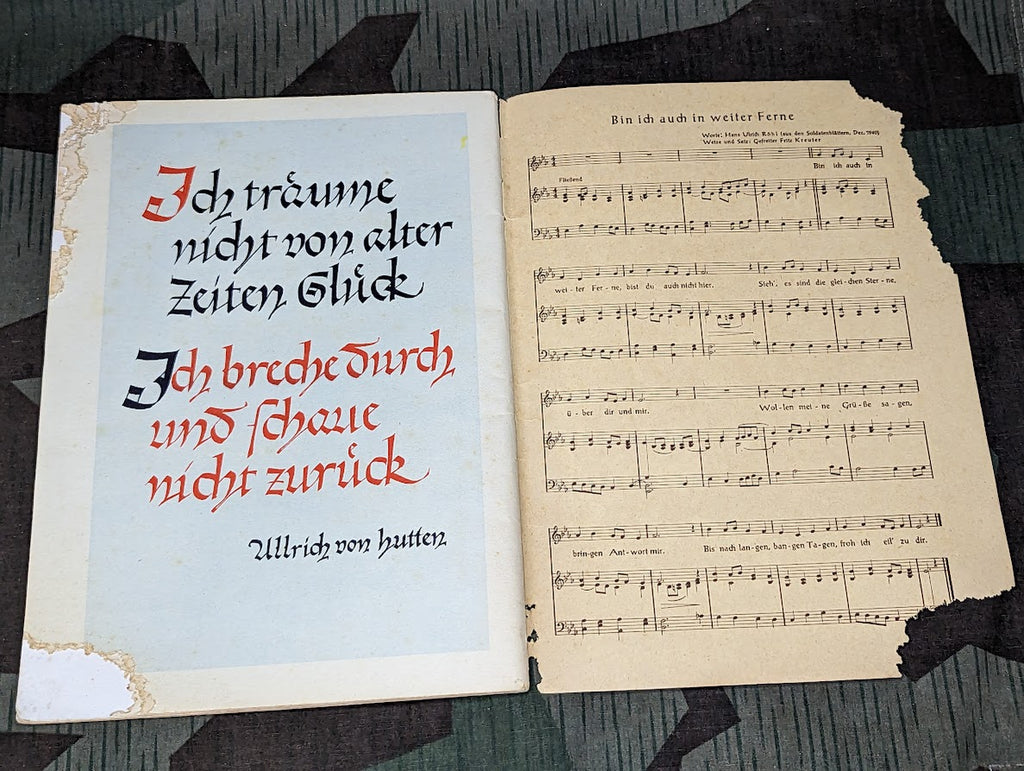 Ich träume
nicht von alter
Zeiten Glück
Ich breche durch
und schaue
nicht zurück
Ullrich von Hutten
Bin ich auch in weiter Ferne
Worte: Hans Ulrich Röhl (aus den Soldatenblättern, Dez. 1940)
Weise und Satz: Gefreiter Fritz Kreuter
Bin ich auch in
Fließend
wei-ter Fer-ne, bist du auch nicht hier. Sieh', es sind die glei-chen Ster-ne,
ü-ber dir und mir. Wol-len mei-ne Grü-ße sa-gen,
brin-gen Ant-wort mir. Bis nach lan-gen, ban-gen Ta-gen, froh ich eil' zu dir.